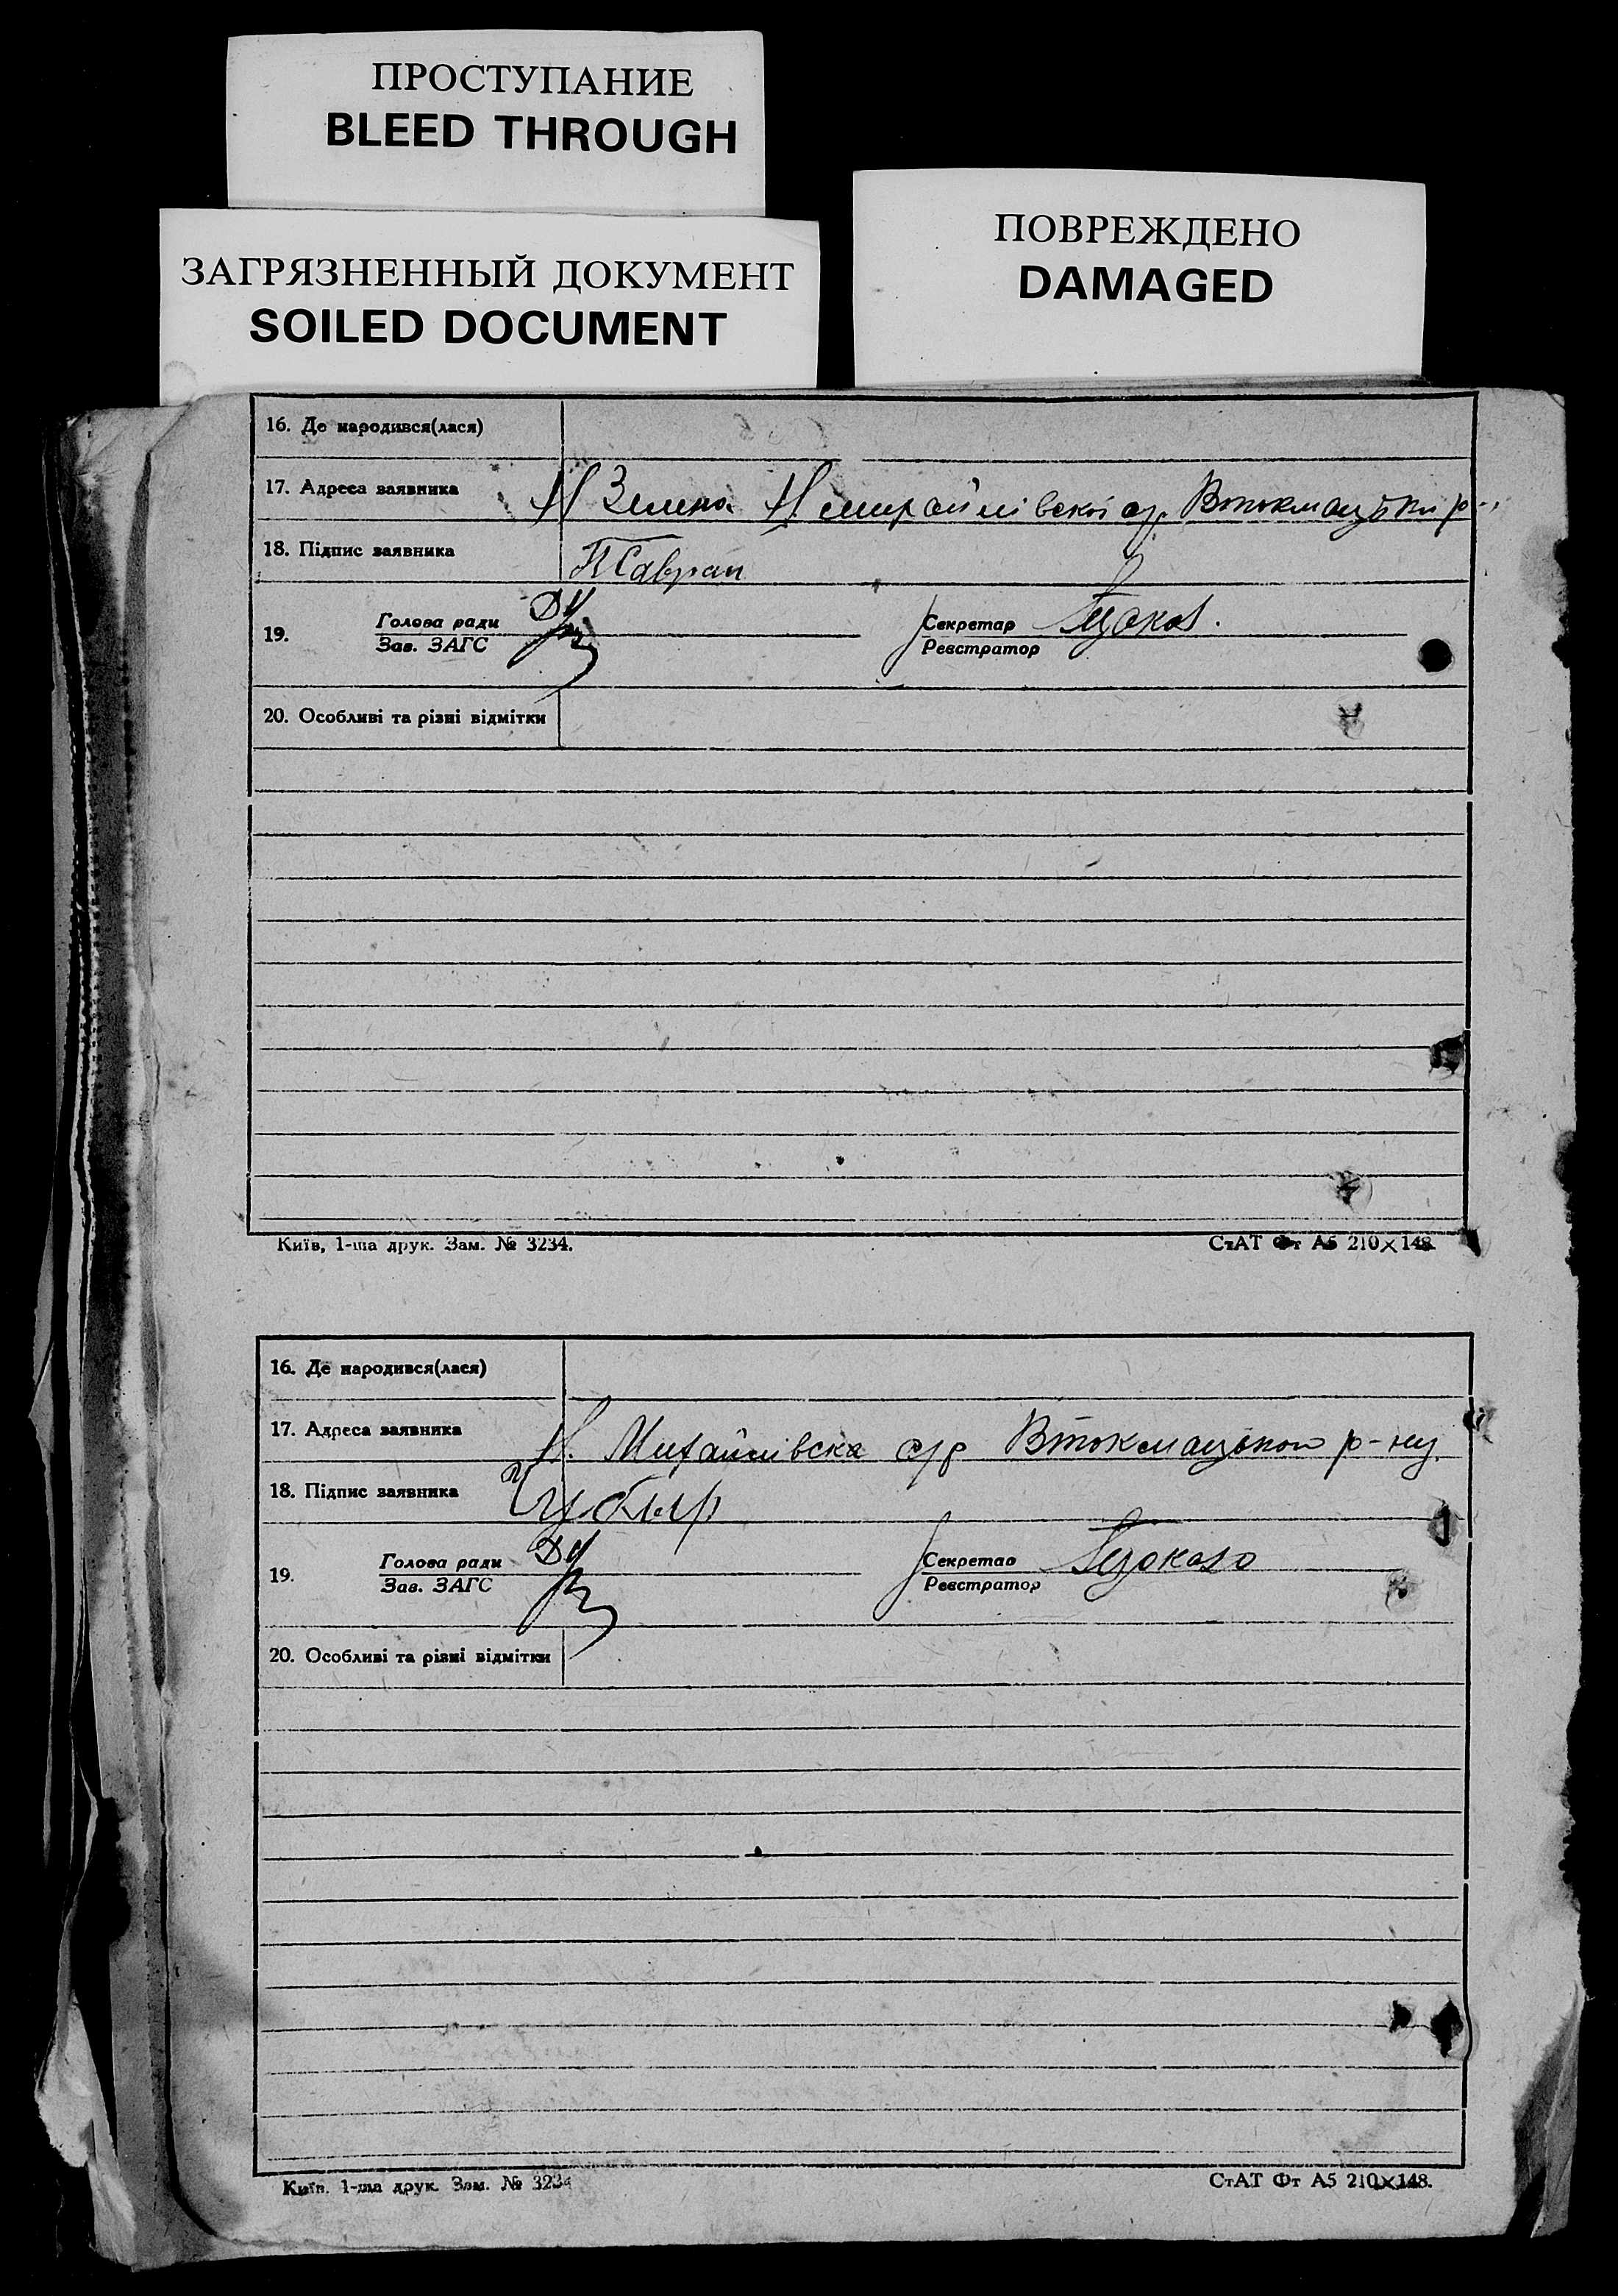 ПРОСТУПАНИЕ
BLEED THROUGH
ЗАГРЯЗНЕННЫЙ ДОКУМЕНТ
SOILED DOCUMENT
ПОВРЕЖДЕНО
DAMAGED
16. Де народився(лася)
17. Адреса заявника Н Зелена
18. Підпис заявника
19. Голова ради Секретар
Зав. ЗАГС Реєстратор
20. Особливі та різні відмітки
Київ, 1-ша друк. Зам. № 3234. СтАТ Фт А5 210×148.
16. Де народився(лася)
17. Адреса заявника Н. Михайлівска с/р Втокмацького р-ну
18. Підпис заявника
19. Голова ради Секретар
Зав. ЗАГС Реєстратор
20. Особливі та різні відмітки
Київ. 1-ша друк. Зам. № 3234 СтАТ Фт А5 210×148.